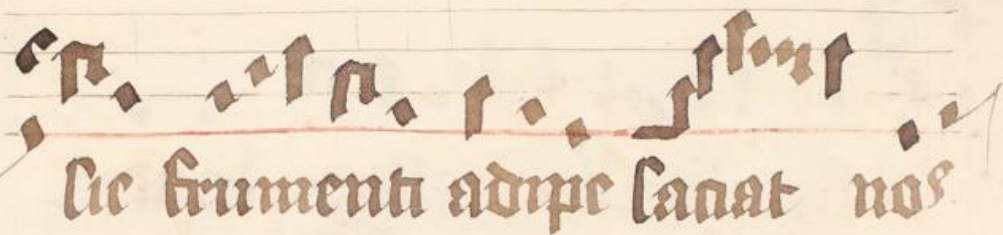 sie frumenti adipe saciat nos